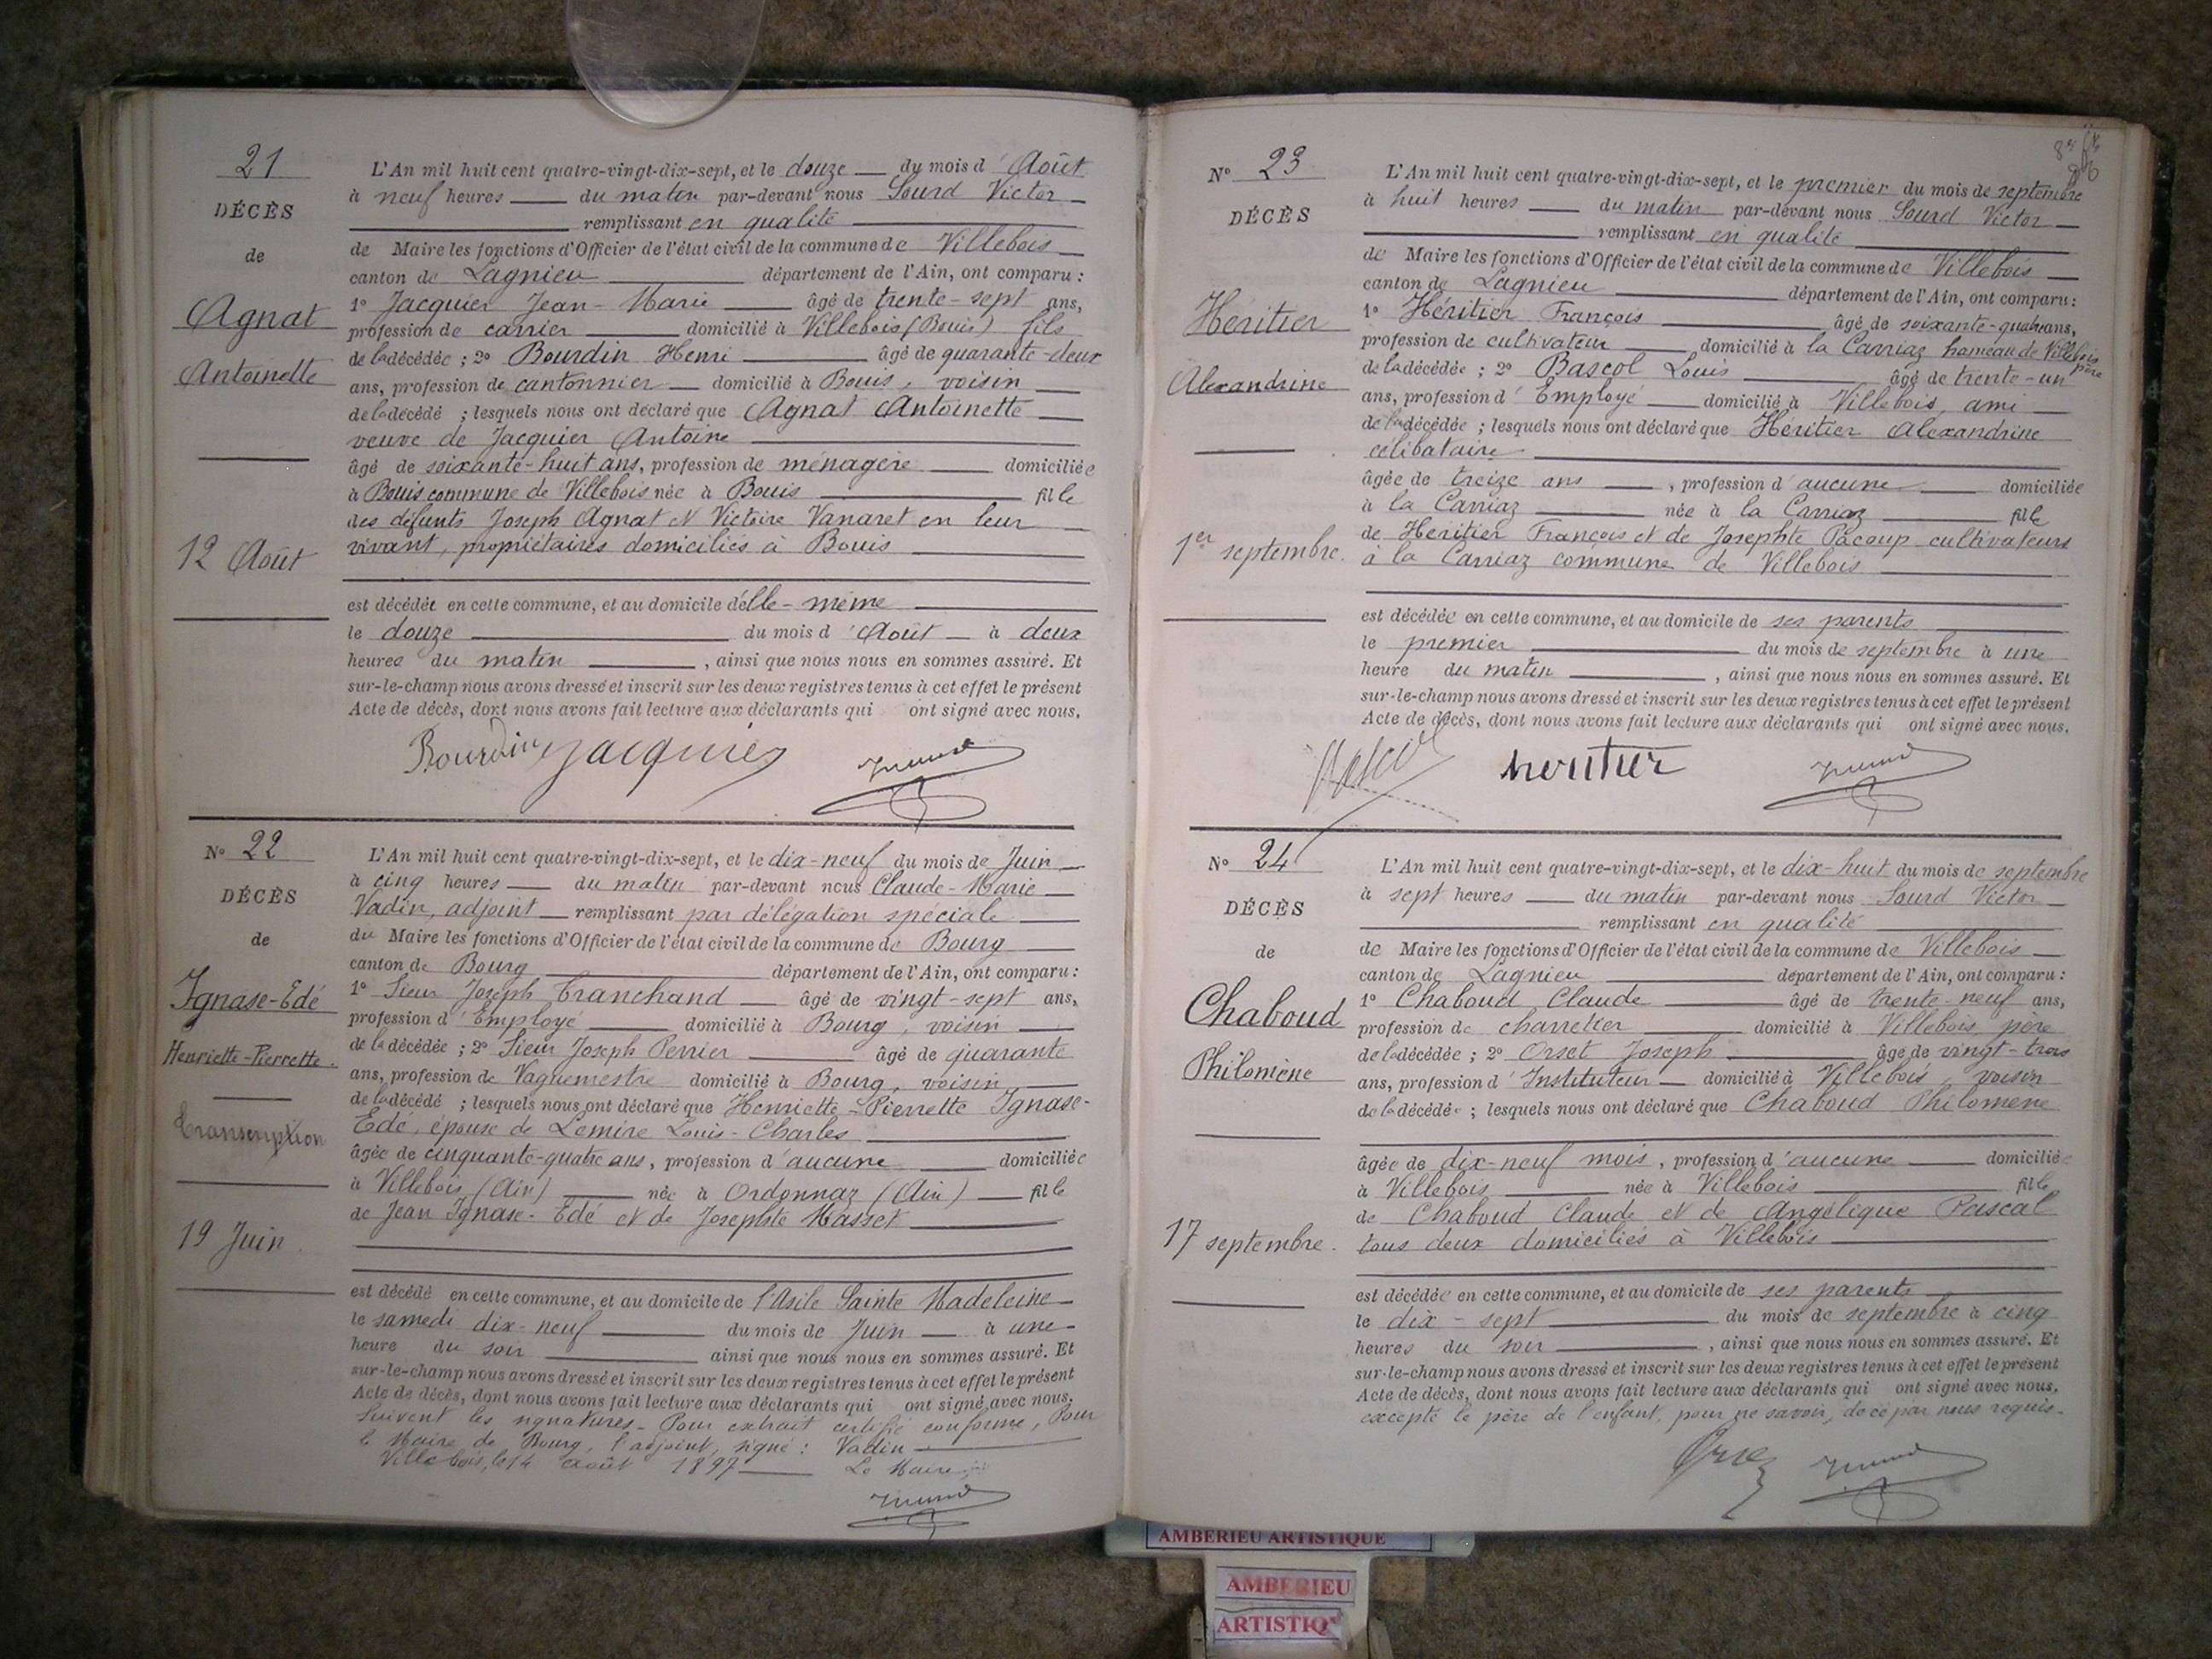 21
DÉCÈS
de
Agnat
Antoinette
12 Août
L'An mil huit cent quatre-vingt-dix-sept, et le douze du mois d'Août
à neuf heures du matin par-devant nous Sourd Victor
remplissant en qualité
de Maire les fonctions d'Officier de l'état civil de la commune de Villebois
canton de Lagnieu département de l'Ain, ont comparu :
1° Jacquier Jean-Marie âgé de trente-sept ans,
profession de carrier domicilié à Villebois (Bouis) fils
de la décédée ; 2° Bourdin Henri âgé de quarante-deux
ans, profession de cantonnier domicilié à Bouis, voisin
de la décédé ; lesquels nous ont déclaré que Agnat Antoinette
veuve de Jacquier Antoine
âgé de soixante-huit ans, profession de ménagère domiciliée
à Bouis commune de Villebois née à Bouis fille
des défunts Joseph Agnat et Victoire Vanaret en leur
vivant, propriétaires domiciliés à Bouis
est décédée en cette commune, et au domicile d'elle-même
le douze du mois d'Août à deux
heures du matin, ainsi que nous nous en sommes assuré. Et
sur-le-champ nous avons dressé et inscrit sur les deux registres tenus à cet effet le présent
Acte de décès, dont nous avons fait lecture aux déclarants qui ont signé avec nous.
Bourdin Jacquier
N° 22
DÉCÈS
de
Ignase-Edé
Henriette-Pierrette.
Transcription
19 Juin.
L'An mil huit cent quatre-vingt-dix-sept, et le dix-neuf du mois de Juin
à cinq heures du matin par-devant nous Claude-Marie
Vadin, adjoint remplissant par délégation spéciale
du Maire les fonctions d'Officier de l'état civil de la commune de Bourg
canton de Bourg département de l'Ain, ont comparu :
1° Sieur Joseph Tranchand âgé de vingt-sept ans,
profession d'Employé domicilié à Bourg, voisin
de la décédée ; 2° Sieur Joseph Perrier âgé de quarante
ans, profession de Vaguemestre domicilié à Bourg, voisin
de la décédé ; lesquels nous ont déclaré que Henriette-Pierrette Ignase-
Edé, épouse de Lemire Louis-Charles
âgée de cinquante-quatre ans, profession d'aucune domiciliée
à Villebois (Ain) née à Ordonnaz (Ain) fille
de Jean Ignase-Edé et de Josephte Masset
est décédé en cette commune, et au domicile de l'Asile Sainte Madeleine
le samedi dix-neuf du mois de Juin à une
heure du soir ainsi que nous nous en sommes assuré. Et
sur-le-champ nous avons dressé et inscrit sur les deux registres tenus à cet effet le présent
Acte de décès, dont nous avons fait lecture aux déclarants qui ont signé avec nous.
Suivent les signatures - Pour extrait certifié conforme, Pour
le Maire de Bourg, l'adjoint, signé : Vadin
Villebois, le 14 août 1897 Le Maire
N° 23
DÉCÈS
Héritier
Alexandrine
1er septembre.
L'An mil huit cent quatre-vingt-dix-sept, et le premier du mois de septembre
à huit heures du matin par-devant nous Sourd Victor
remplissant en qualité
de Maire les fonctions d'Officier de l'état civil de la commune de Villebois
canton de Lagnieu département de l'Ain, ont comparu :
1° Héritier François âgé de soixante-quatre ans,
profession de cultivateur domicilié à la Carriaz hameau de Villebois père
de la décédée ; 2° Bascol Louis âgé de trente-un
ans, profession d'Employé domicilié à Villebois, ami
de la décédée ; lesquels nous ont déclaré que Héritier Alexandrine
célibataire
âgée de treize ans, profession d'aucune domiciliée
à la Carriaz née à la Carriaz fille
de Héritier François et de Josephte Pacoup cultivateurs
à la Carriaz commune de Villebois
est décédée en cette commune, et au domicile de ses parents
le premier du mois de septembre à une
heure du matin, ainsi que nous nous en sommes assuré. Et
sur-le-champ nous avons dressé et inscrit sur les deux registres tenus à cet effet le présent
Acte de décès, dont nous avons fait lecture aux déclarants qui ont signé avec nous.
heritier
N° 24
DÉCÈS
de
Chaboud
Philomène
17 septembre.
L'An mil huit cent quatre-vingt-dix-sept, et le dix-huit du mois de septembre
à sept heures du matin par-devant nous Sourd Victor
remplissant en qualité
de Maire les fonctions d'Officier de l'état civil de la commune de Villebois
canton de Lagnieu département de l'Ain, ont comparu :
1° Chaboud Claude âgé de trente-neuf ans,
profession de charretier domicilié à Villebois père
de la décédée ; 2° Orset Joseph âgé de vingt-trois
ans, profession d'Instituteur domicilié à Villebois, voisin
de la décédée ; lesquels nous ont déclaré que Chaboud Philomène
âgée de dix-neuf mois, profession d'aucune domiciliée
à Villebois née à Villebois fille
de Chaboud Claude et de Angélique Pascal
tous deux domiciliés à Villebois
est décédée en cette commune, et au domicile de ses parents
le dix-sept du mois de septembre à cinq
heures du soir, ainsi que nous nous en sommes assuré. Et
sur-le-champ nous avons dressé et inscrit sur les deux registres tenus à cet effet le présent
Acte de décès, dont nous avons fait lecture aux déclarants qui ont signé avec nous.
excepté le père de l'enfant, pour ne savoir, de ce par nous requis.
AMBERIEU ARTISTIQUE
AMBERIEU
ARTISTIQ